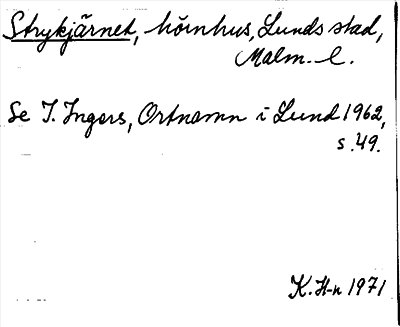 Strykjärnet, hörnhus, Lunds stad,
Malm. l.
Se I. Ingers, Ortnamn i Lund 1962,
s. 49.
K. H-n 1971